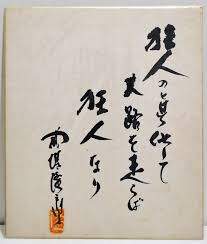 狂人の真似して
大路を走らば
狂人なり